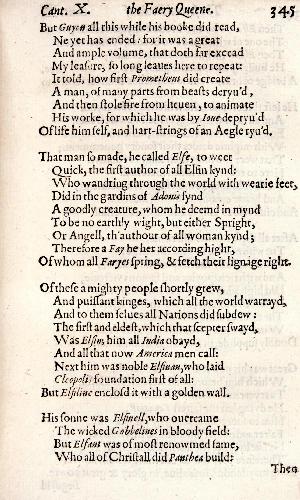 Cant. X. the Faery Queene. 345
But Guyon all this while his booke did read,
Ne yet has ended: for it was a great
And ample volume, that doth far excead
My leasure, so long leaues here to repeat:
It told, how first Prometheus did create
A man, of many parts from beasts deryu'd,
And then stole fire from heuen, to animate
His worke, for which he was by Ioue depryu'd
Of life him self, and hart-strings of an Aegle ryu'd.
That man so made, he called Elfe, to weet
Quick, the first author of all Elfin kynd:
Who wandring through the world with wearie feet,
Did in the gardins of Adonis fynd
A goodly creature, whom he deemd in mynd
To be no earthly wight, but either Spright,
Or Angell, th'authour of all woman kynd;
Therefore a Fay he her according hight,
Of whom all Faryes spring, & fetch their lignage right.
Of these a mighty people shortly grew,
And puissant kinges, which all the world warrayd,
And to them selues all Nations did subdew:
The first and eldest, which that scepter swayd,
Was Elfin, him all India obayd,
And all that now America men call:
Next him was noble Elfinan, who laid
Cleopolis foundation first of all:
But Elfiline enclosd it with a golden wall.
His sonne was Elfinell, who ouercame
The wicked Gobbelines in bloody field:
But Elfant was of most renowmed fame,
Who all of Christall did Panthea build:
Then